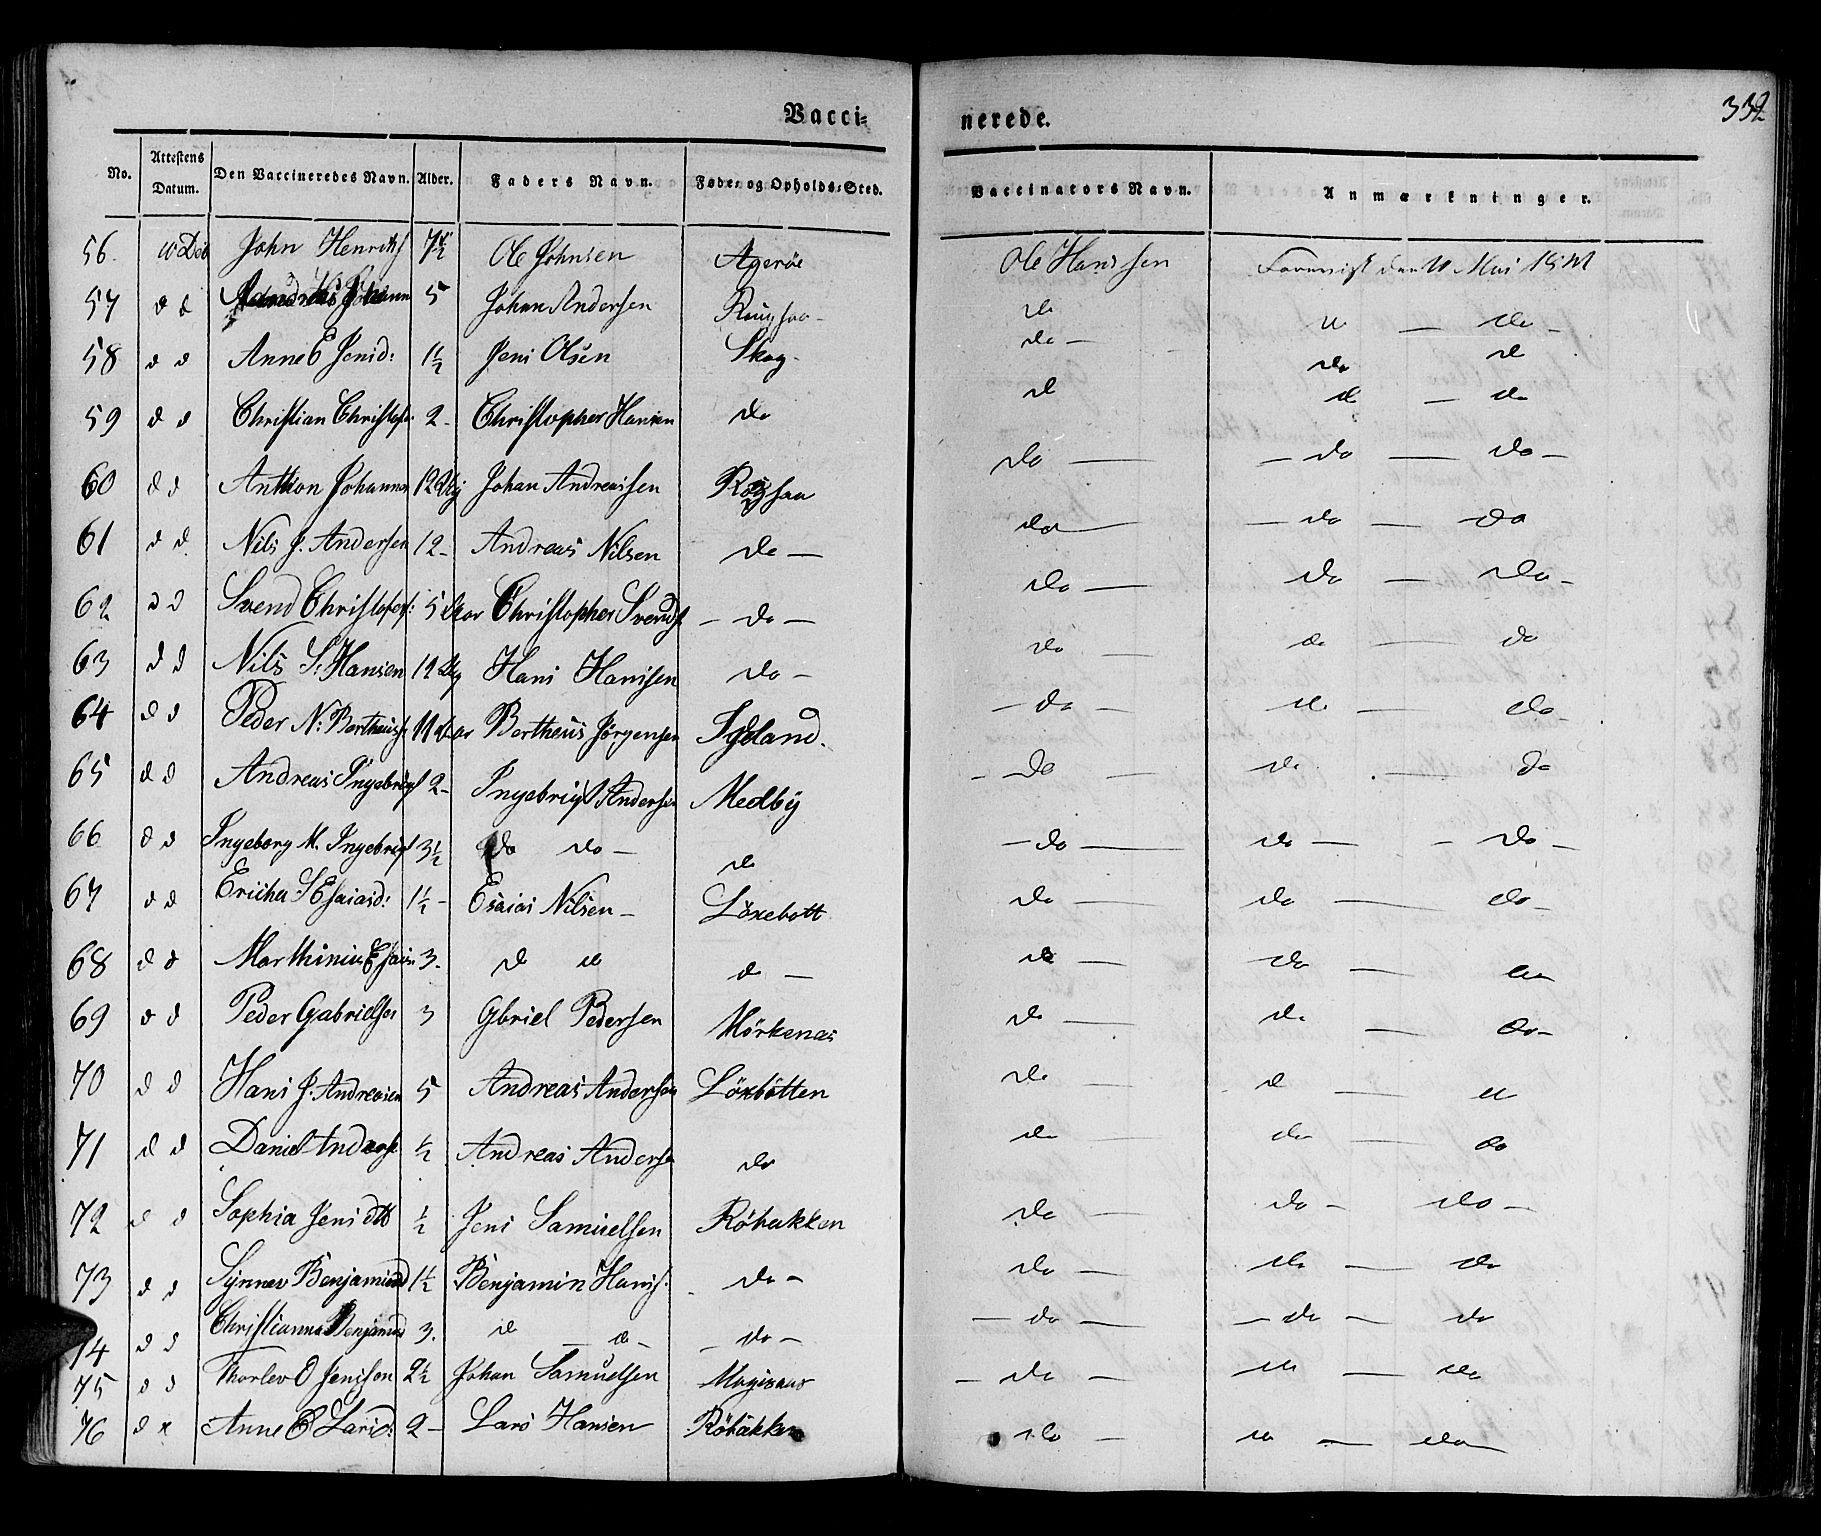 Vacci- nerede. 332
No. Attestens Datum. Den Vaccineredes Navn. Alder. Faders Navn. Føde- og Opholds-Sted. Vaccinators Navn. Anmærkninger.
56. John Henrichs Ole Johnsen Agerøe Ole Hanssen den 11 Mai
57 d d 5 Johan Andersen do do
58 d d Anne E Jensd: 1½ Jens Olsen Skog do do d
59 d d Christian Christofs. 2 - Christopher Hansen do d d - do
60 d d Anthon Johannes 12 Johan Andreassen do - do - do -
61 d d Nils J. Andersen 12 - Andreas Nilsen do - do - do - do
62 d d Svend Christofers: 5 Christopher Svends - do - do - do - do -
63 d d Nils S. Hansen 12 Hans Hansen do - do - do - do
64 d d Peder N: Bertheus 11 Bertheus Jørgensen Igeland. - do - do - do -
65 d d Andreas Ingebrigt 2 - Ingebrigt Andersen Medby - do - do - do
66 d d Ingeborg M. Ingebrigt 3½ do do - do - do - do - - do -
67 d d Ericha S Esaiasd: 1½ - Esaias Nilsen - Löxebott do - do - do -
68 d d Marthinius Esais 3 - d d do - do - do - do
69 d d Peder Gabrielsen 3 Gbriel Pedersen Mörkenas do - do - do -
70 d d Hans J. Andreasen 5 Andreas Andersen Löxbötten do d - d
71 d d Daniel Andreas ½ Andreas Andersen do do - do - do
72 d d Sophia Jensdtt ½ Jens Samuelsen Röbakken do - do - do -
73 d d Synnev Benjamind 1½ Benjamin Hans. do - do - do - do
74 d d Christianna Benjamind 3. d - d - - do - - do - - do - do
75 d d Thorlev O Jenssen 2½ Johan Samuelsen - do - do - do
76 d d Anne E Larsd: 2 - Lars Hansen Röbakken do - do - do